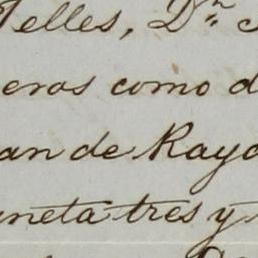 Telles, Dn
eros como d
an de Raya
neta tres y